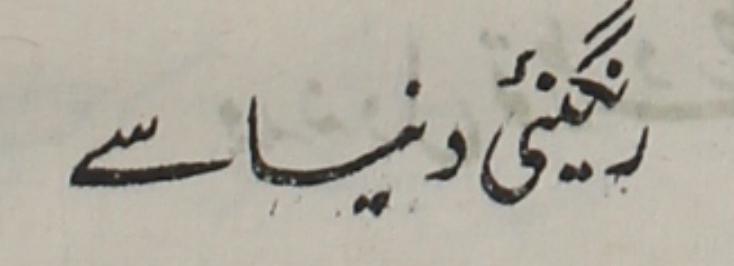 رنگینئ دنیا سے